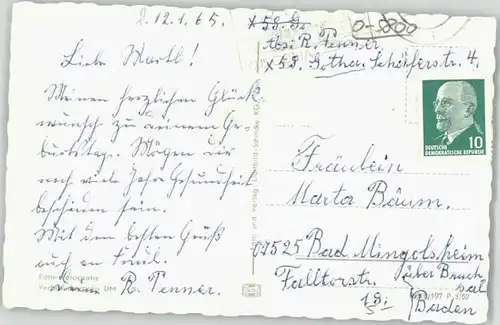 2.12.1.65.
Liebe Martl!
Meinen herzlichen Glück
wunsch zu deinem Ge-
burtstag. Mögen dir
noch viele Jahre Gesundheit
beschieden sein.
Mit den besten Grüß
auch an
R. Penner.
Echte Fotografie
DM
x 58. G.
Abs. R. Penner
x 58. Gotha. Schäferstr. 4.
10
DEUTSCHE
DEMOKRATISCHE REPUBLIK
Fräulein
Marta Bäum.
07525 Bad Mingolsheim
Falltorstr. über Bruch
sal
18. Baden